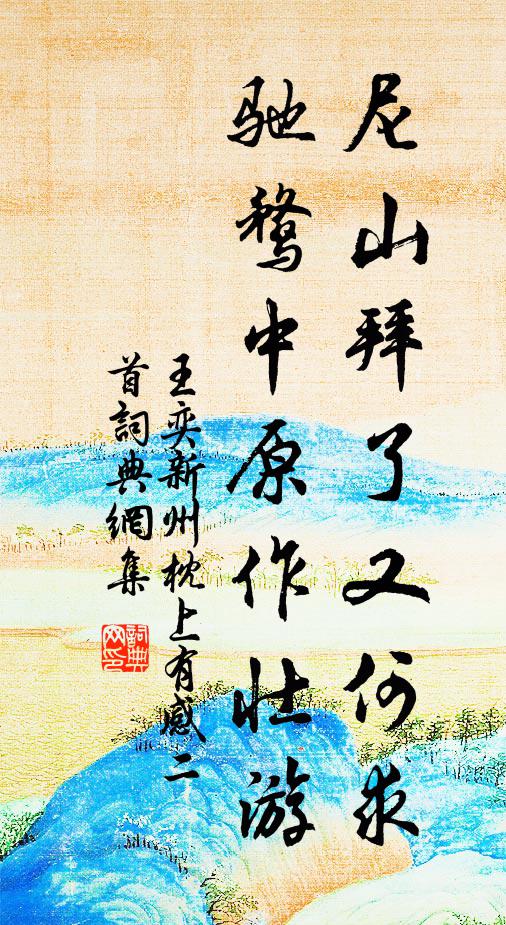 尼山拜了又何求
馳鶩中原作壯游
王奕新州枕上有感二
首詞典網集
詞典
网印